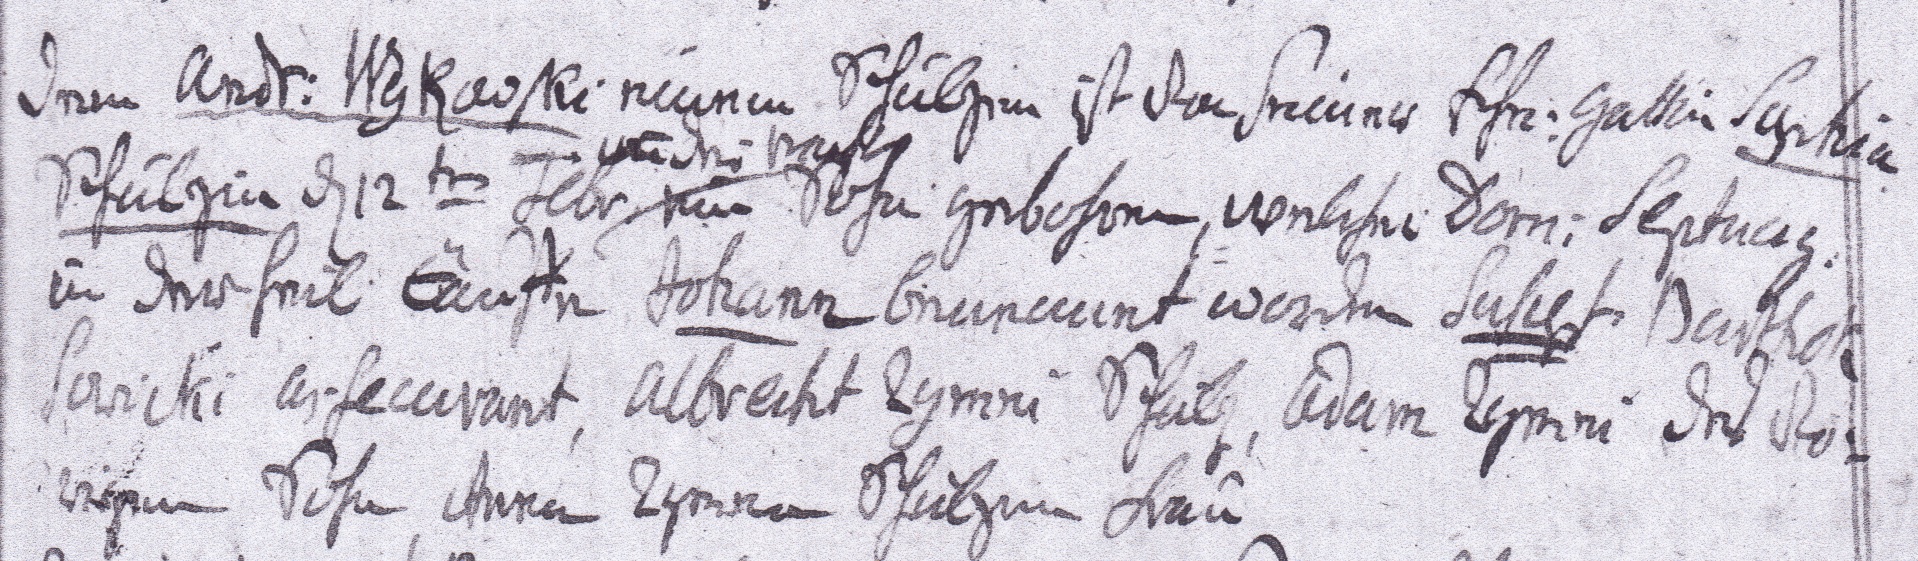 Dem Andr: Wykowski einem Schulzen ist von seiner Ehe: Gattin Sophia
Schulzin d 12ten Febr ein Sohn gebohren, welcher Dom: Septuag.
in der heil. Tauffe Johann benennt worden Suscept. Barthol
Sowicki assecurant, Albrecht Zymni Schulz, Adam Zymni des
Sohn, Anna Schulzen Frau